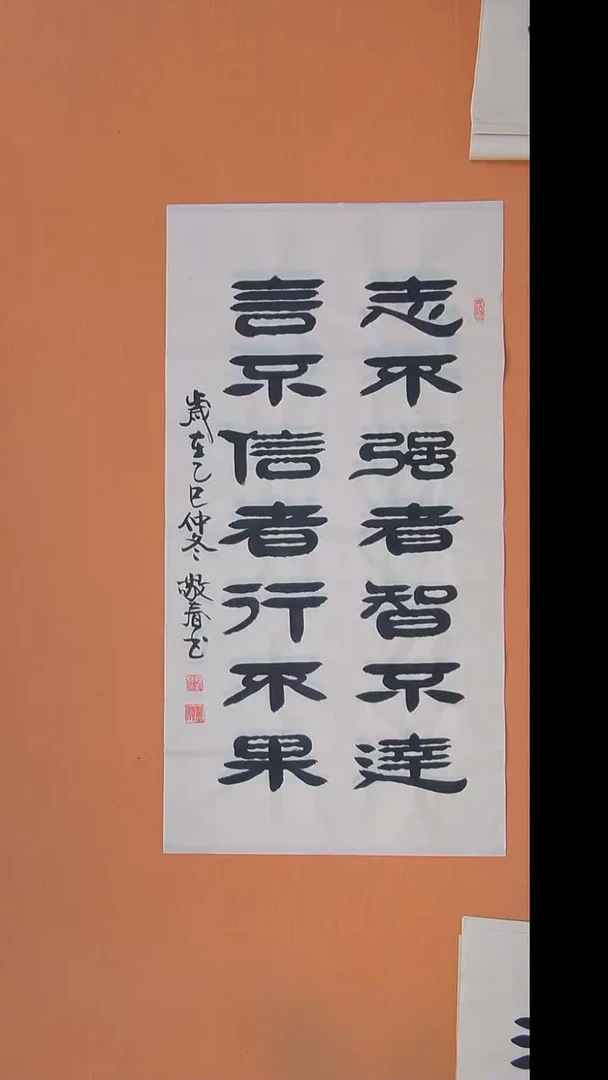 志不强者智不達
言不信者行不果
歲在乙巳仲冬 敬春书